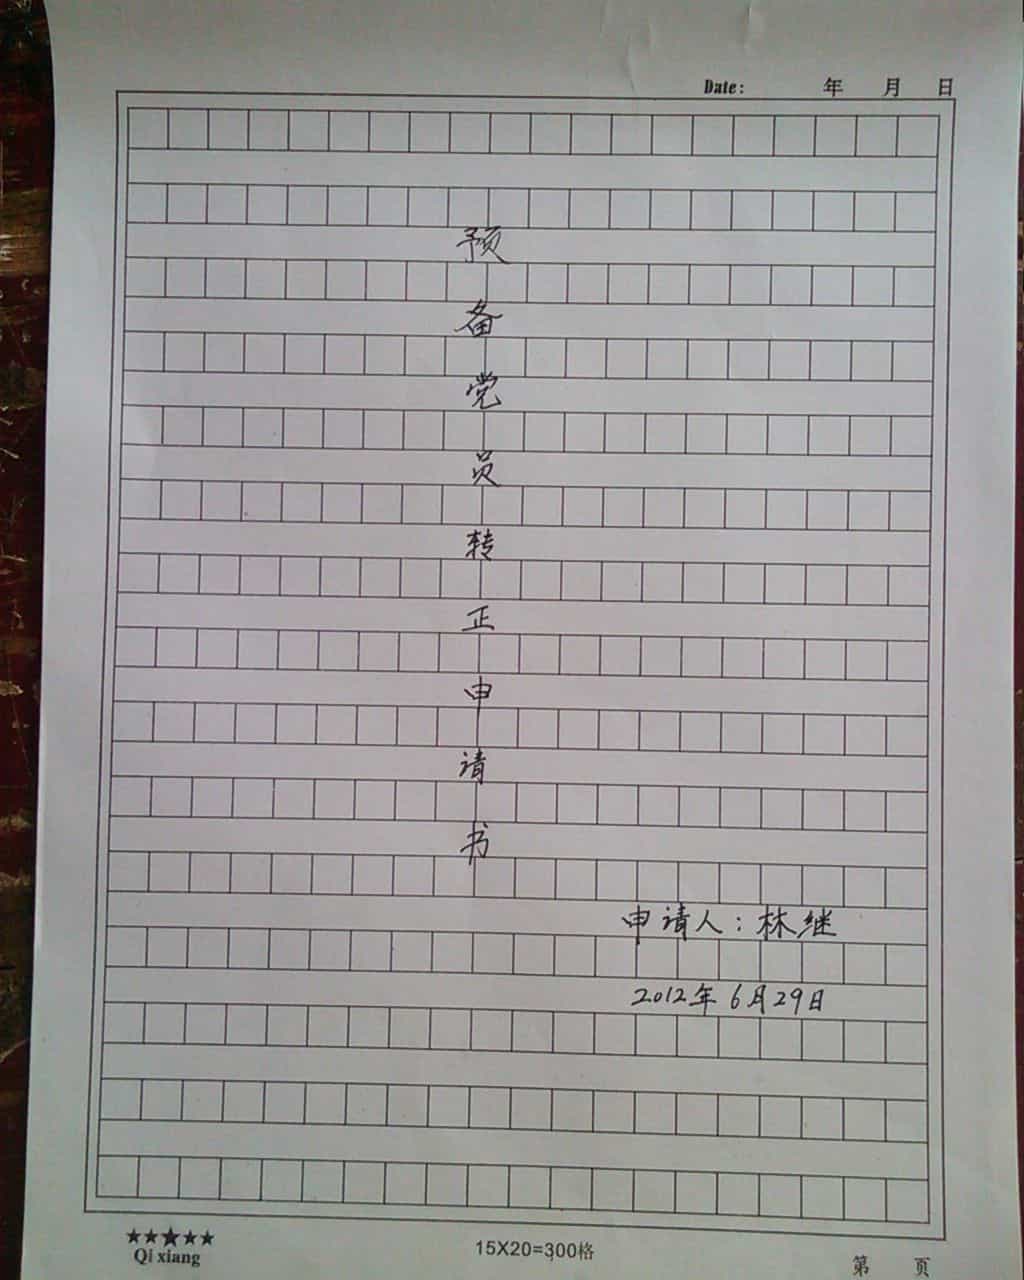 Date: 年 月 日
预
备
党
员
转
正
申
请
书
申请人：林继
2012年6月29日
★★★★★
Qi xiang
15X20=300格
第 页